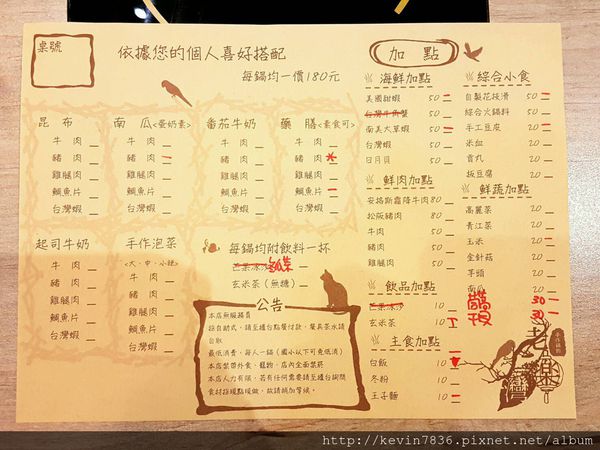 桌號
依據您的個人喜好搭配
每鍋均一價180元
昆布
牛肉
豬肉
雞腿肉
鯛魚片
台灣蝦
南瓜<蛋奶素>
牛肉
豬肉
雞腿肉
鯛魚片
台灣蝦
番茄牛奶
牛肉
豬肉
雞腿肉
鯛魚片
台灣蝦
藥膳<素食可>
牛肉
豬肉
雞腿肉
鯛魚片
台灣蝦
起司牛奶
牛肉
豬肉
雞腿肉
鯛魚片
台灣蝦
手作泡菜
<大、中、小辣>
牛肉
豬肉
雞腿肉
鯛魚片
台灣蝦
每鍋均附飲料一杯
芒果冰沙
玄米茶(無糖)
公告
本店無服務員
採自助式,請至櫃台點餐付款,餐具茶水請
自取
最低消費,每人一鍋(國小以下可免低消)
本店禁帶外食、寵物,店內全面禁菸
本店人力有限,若有任何需要請至櫃台詢問
食材採現點現做,故請稍加等候。
加點
海鮮加點
美國甜蝦 50
台灣牛肉蟹 50
南美大草蝦 50
台灣蝦 50
日月貝 50
鮮肉加點
安格斯霜降牛肉 80
松阪豬肉 80
牛肉 50
豬肉 50
雞腿肉 50
飲品加點
芒果冰沙 10
玄米茶 10
主食加點
白飯 10
冬粉 10
王子麵 10
綜合小食
自製花枝滑 50
綜合火鍋料 50
手工豆皮 20
米血 20
貢丸 20
板豆腐 20
鮮蔬加點
高麗菜 20
青江菜 20
玉米 20
金針菇 20
芋頭 20
南瓜 20
老樂
http://kevin7836.pixnet.net/album